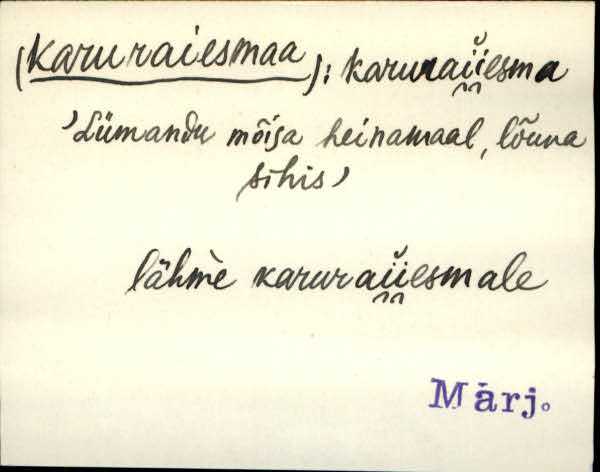 (karuraiesmaa): karurai̯i̯ĕsma
'Lümandu mõisa heinamaal, lõuna
sihis'
lähm̀e karurai̯i̯ĕsmale
Märj.